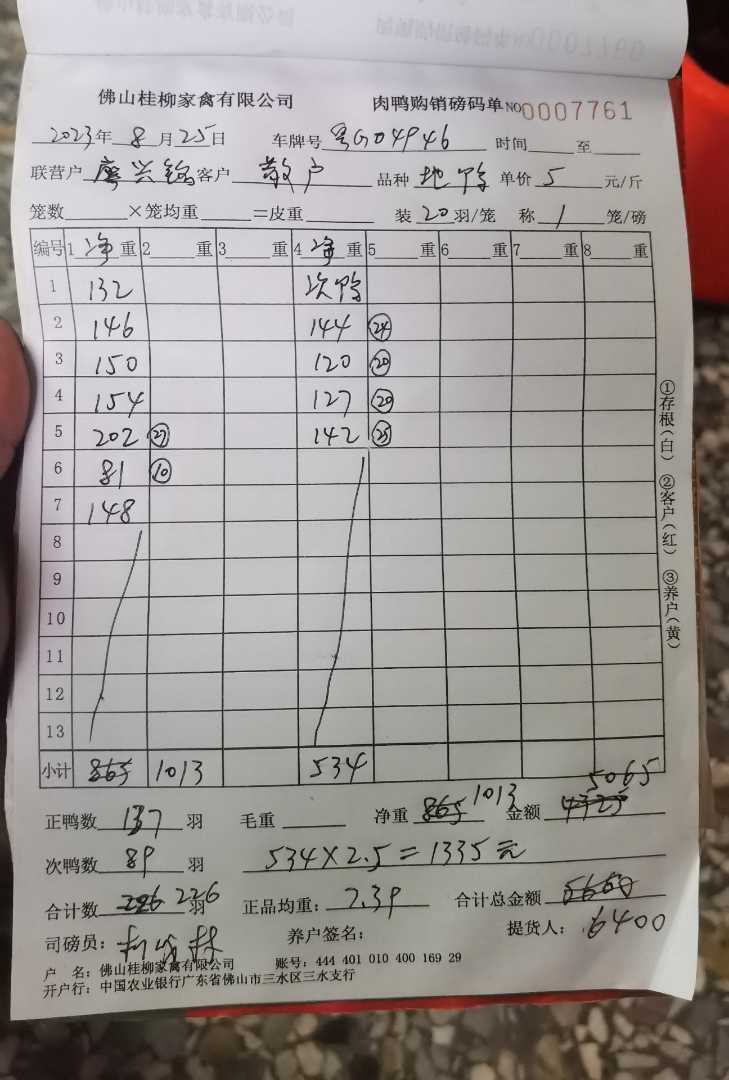 佛山桂柳家禽有限公司 肉鸭购销磅码单 NO0007761
2023年8月25日 车牌号 粤G04946 时间 至
联营户 廖兴铭 客户 散户 品种 地鸭 单价 5 元/斤
笼数 ×笼均重 =皮重 装 20 羽/笼 称 1 笼/磅
编号 1 净 重 2 重 3 重 4 净 重 5 重 6 重 7 重 8 重
1 132 次鸭
2 146 144 24
3 150 120 20
4 154 127 20
5 202 27 142 25
6 81 10
7 148
8
9
10
11
12
13
小计 865 1013 534
5065
正鸭数 137 羽 毛重 净重 865 1013 金额 4325
次鸭数 89 羽 534×2.5=1335元
合计数 226 226 羽 正品均重: 7.39 合计总金额 5660
司磅员: 养户签名: 提货人: 6400
户 名: 佛山桂柳家禽有限公司 账号: 444 401 010 400 169 29
开户行: 中国农业银行广东省佛山市三水区三水支行
①存根(白) ②客户(红) ③养户(黄)